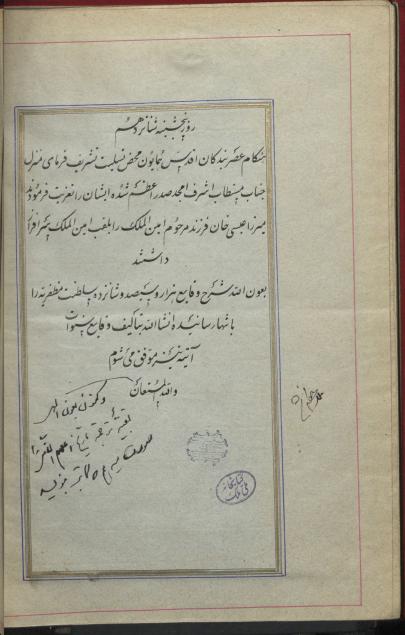 روز پنجشنبه شانزدهم
هنگام عصر بندگان اقدس همایون محض تسلیت تشریف فرمای منزل
جناب مستطاب اشرف امجد صدراعظم شده ایشان را تعزیت فرمودند
میرزا عیسی خان فرزند مرحوم امین الملک را بلقب امین الملک سرافراز
داشتند
بعون الله شرح وقایع هزار و سیصد و شانزده سلطنت مظفریه را
بانتها رسانیده انشاالله بتألیف وقایع سنوات
آتیه نیز موفق می شوم
والله المستعان
وکنون بعون الهی
بقیه ترجمه تاریخ
صورت
کتابخانه
ملی ملک